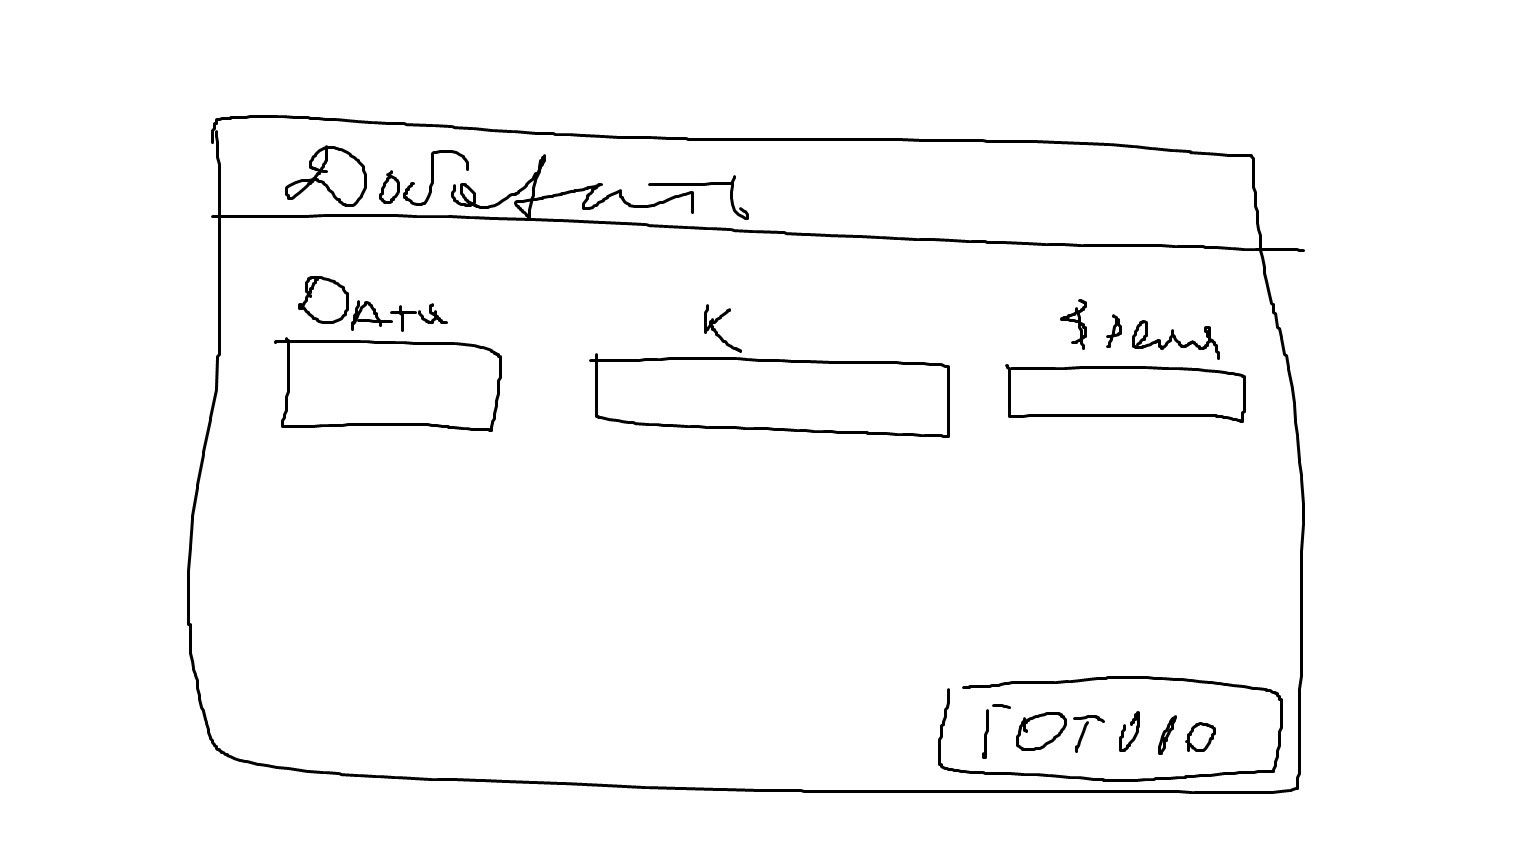 Добавить
Дата К Время
Готово